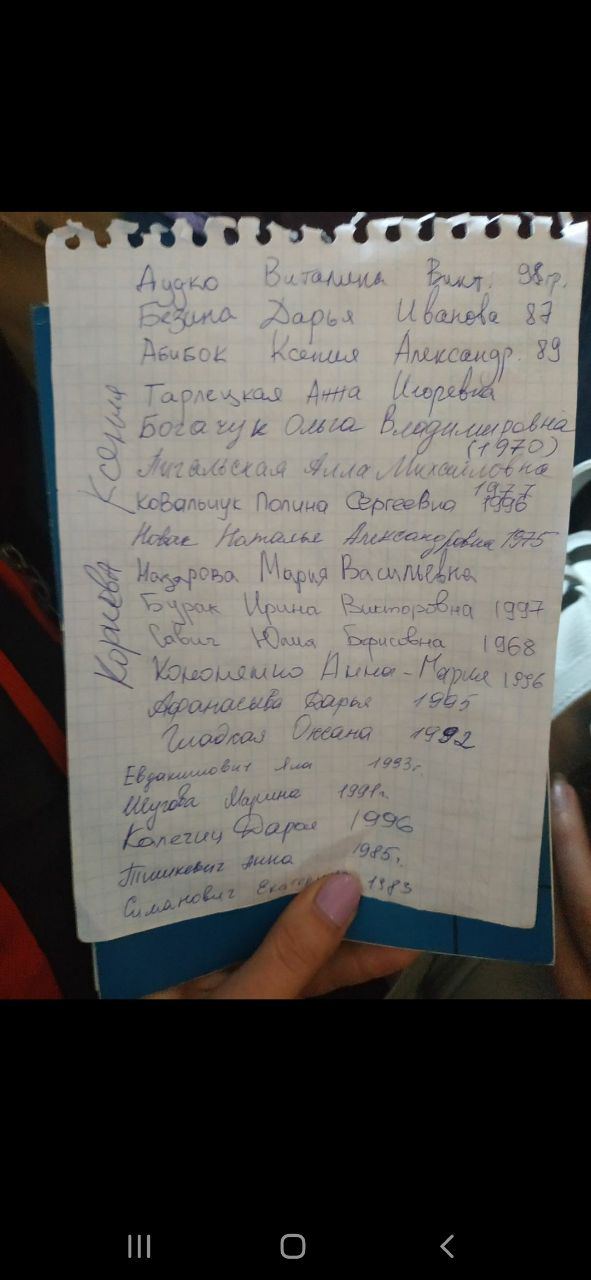 Дудко Виталина Викт. 98 гр.
Безина Дарья Иванова 87
Абибок Ксения Александр. 89
Тарлецкая Анна Игоревна
Богачук Ольга Владимировна
(1970)
Пигальская Алла Михайловна
1977
Ковальчук Полина Сергеевна 1996
Новак Наталья Александровна 1975
Назарова Мария Васильевна
Бурак Ирина Викторовна 1997
Савич Юлия Борисовна 1968
Кононенко Анна-Мария 1996
Афанасьева Дарья 1995
Гладкая Оксана 1992
Евдакимович Яна 1993г.
Марина 1991г.
Калечиц Дарья 1996
Тишкевич Анна 1985г.
Симанович Екатерина 1983
Ксения
Корнеева